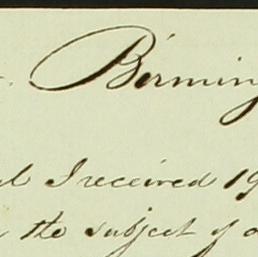 Birmin
I received 19
the subject of a